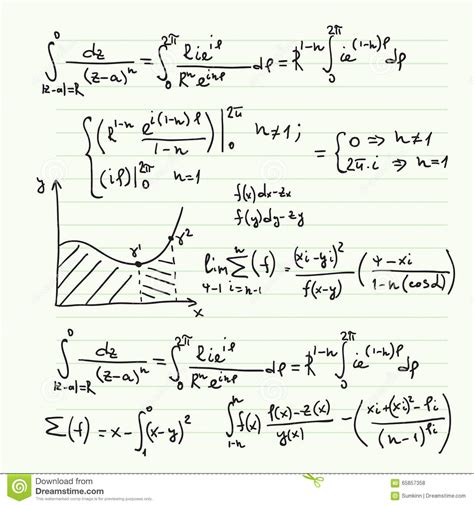 ∫_{|z-a|=R}^{0} dz/(z-a)^n = ∫_0^{2π} Rie^{iφ}/R^n e^{inφ} dφ = R^{1-n} ∫_0^{2π} ie^{i(1-n)φ} dφ
{ (R^{1-n} e^{i(1-n)φ}/1-n) |_0^{2π} n≠1; = { 0 ⇒ n≠1
(iφ)|_0^{2π} n=1 2π.i ⇒ n=1
y
f(x)dx-zx
f(y)dy-zy
γ1 γ2
lim_{4-1} Σ_{i=n-1}^{n} (f) = (xi-yi)^2/f(x-y) (4-xi/1-n(cosd))
x
∫_{|z-a|=R}^{0} dz/(z-a)^n = ∫_0^{2π} Rie^{iφ}/R^n e^{inφ} dφ = R^{1-n} ∫_0^{2π} ie^{i(1-n)φ} dφ
Σ(f) = x-∫_1^0 (x-y)^2 ∫_{1-n}^{n} f(x) f(x)-z(x)/y(x) - (xi+(xi)^2-li/(n-1)^{li})
Download from
Dreamstime.com
This watermarked comp image is for previewing purposes only.
65857358
Sumkinn | Dreamstime.com